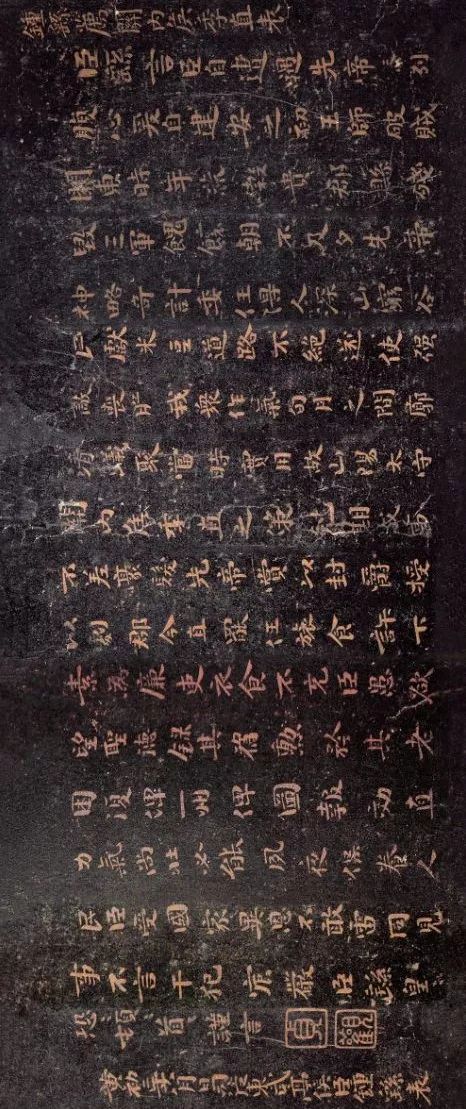 鍾繇薦關內侯季直表
臣繇言臣自遭遇先帝列
腹心爰自建安之初王師破賊
關東時年荒穀貴郡縣殘
毀三軍餽饟朝不及夕先帝
神略奇計委任得人深山窮谷
民獻米豆道路不絕遂使强
敵喪膽我衆作氣旬月之間廓
清蟻聚當時實用故山陽太守
關內侯季直之策剋期成事
不差豪髮先帝賞以封爵授
以劇郡今直罷任旅食許下
素為廉吏衣食不充臣愚欲
望聖德錄其舊勳矜其老
困復俾一州俾圖報効直
力氣尚壯必能夙夜保養人
民臣受國家異恩不敢雷同見
事不言干犯宸嚴臣繇皇
恐頓首謹言 貞 觀
黃初二年八月日司徒東武亭侯臣鍾繇表